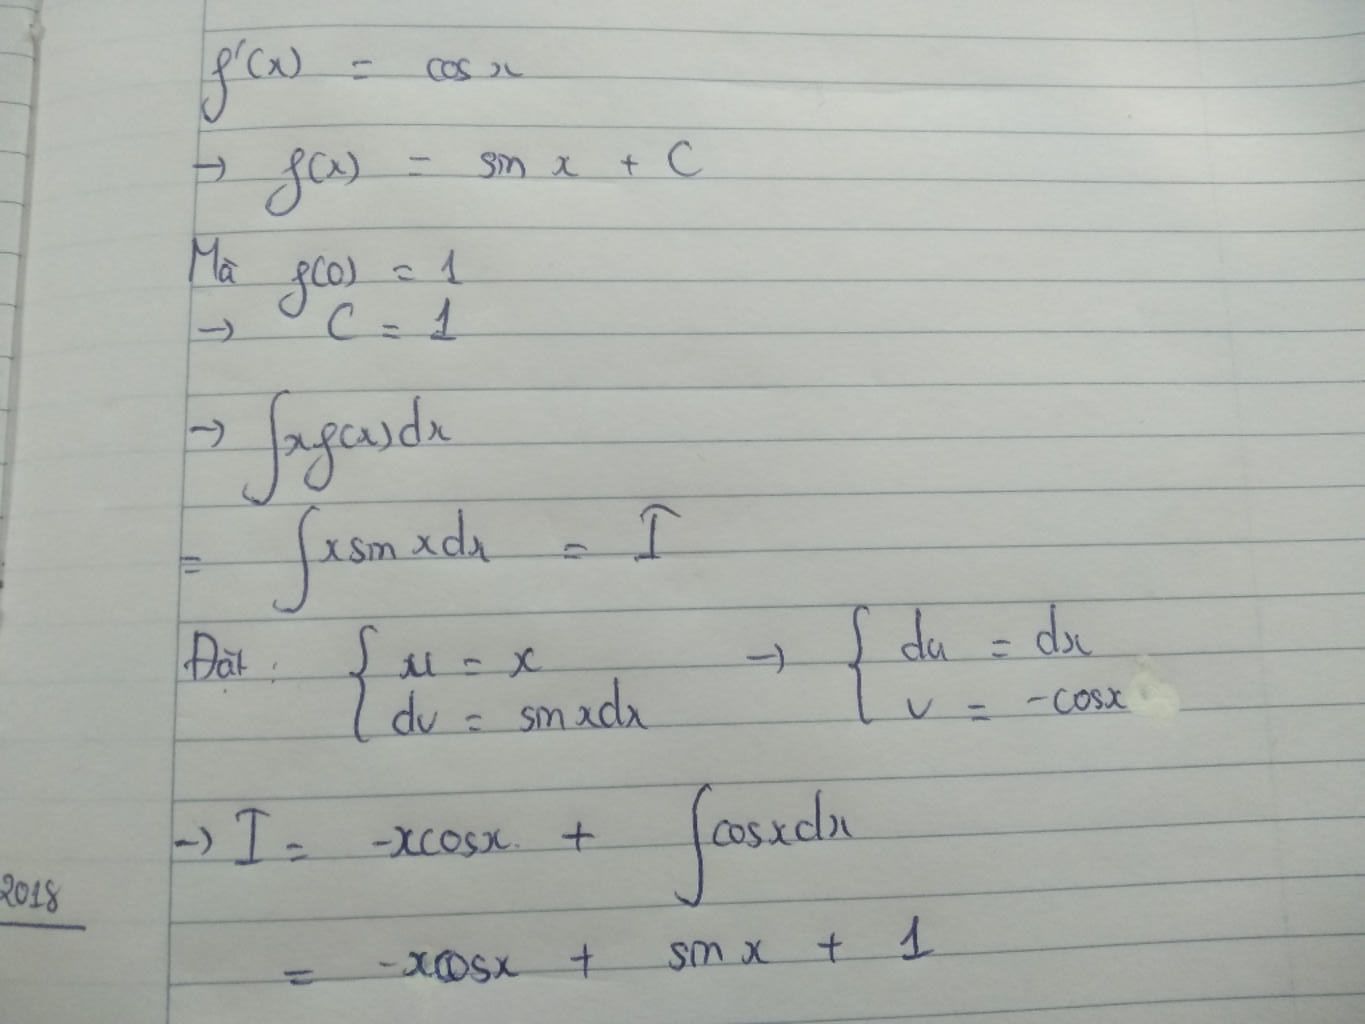 f'(x) = cos x
→ f(x) = sin x + C
Mà f(0) = 1
→ C = 1
→ ∫xf(x)dx
= ∫x sin x dx = I
Đặt: { u = x → { du = dx
dv = sin x dx v = -cosx
→ I = -xcosx + ∫cosxdx
2018
= -xcosx + sin x + 1